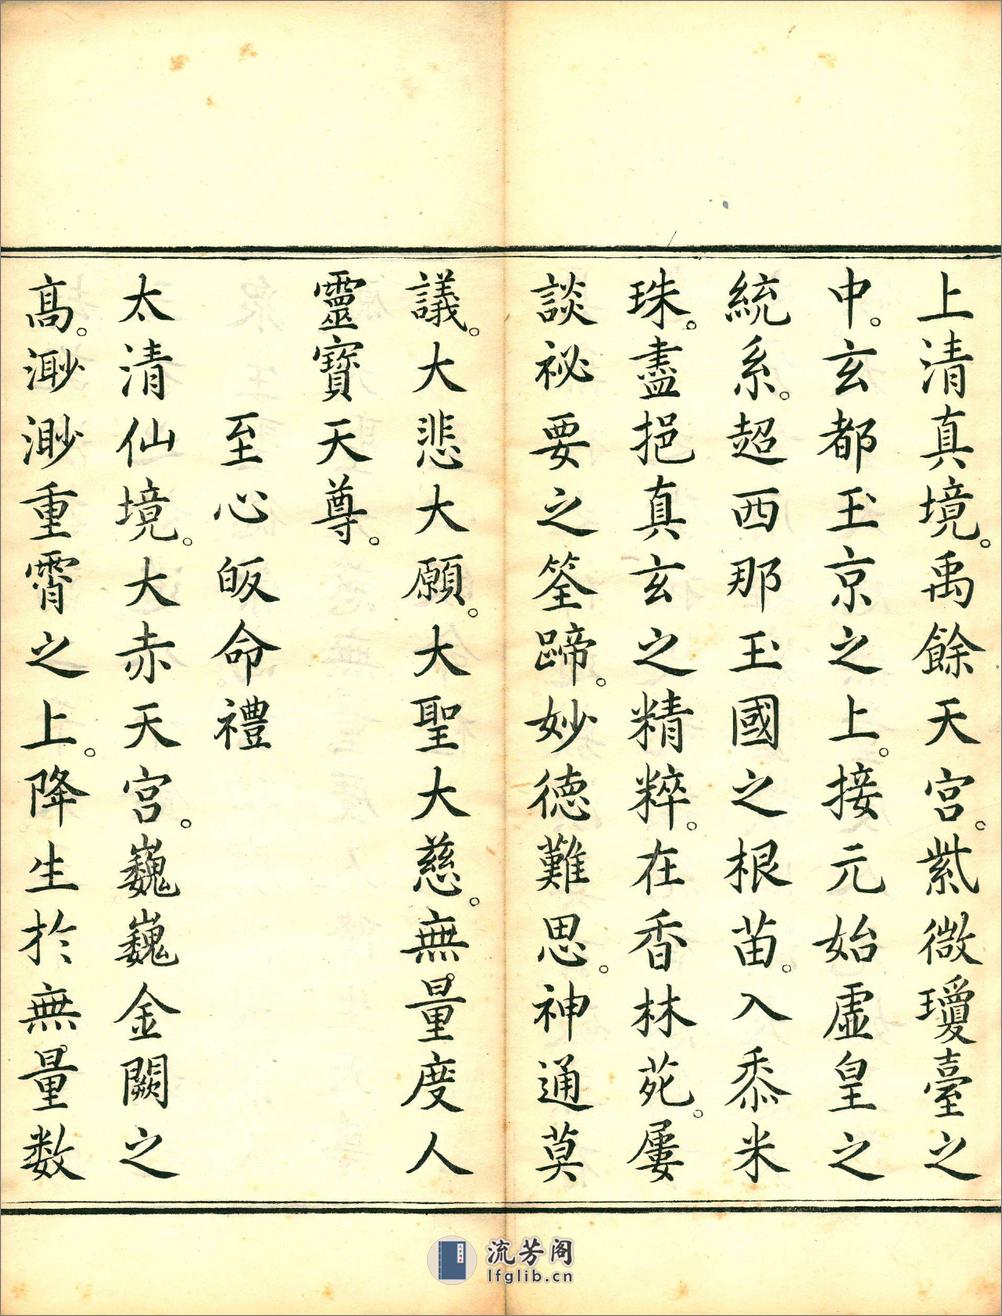 上清真境。禹餘天宮。紫微瓊臺之
中。玄都玉京之上。接元始虛皇之
統系。超西那玉國之根苗。入黍米
珠。盡挹真玄之精粹。在香林苑。屢
談祕要之筌蹄。妙德難思。神通莫
議。大悲大願。大聖大慈。無量度人
靈寶天尊。
至心皈命禮
太清仙境。大赤天宮。巍巍金闕之
高。渺渺重霄之上。降生於無量數
流芳阁
lfglib.cn